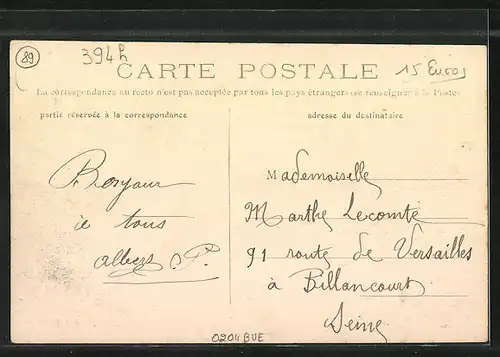 89
394h
15 Euros
CARTE POSTALE
La correspondance au recto n'est pas acceptée par tous les pays étrangers (se renseigner à la Poste)
partie réservée à la correspondance
adresse du destinataire
Bonjour
à tous
Mademoiselle
Marthe Lecomte
91 route de Versailles
à Billancourt
Seine
0204BUE